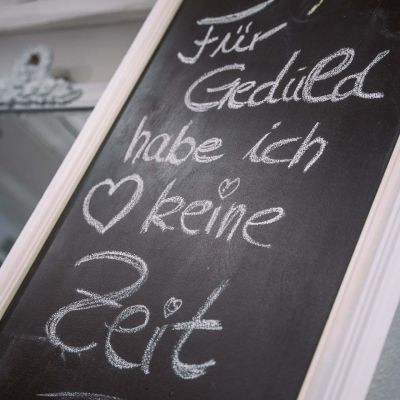 Für
Geduld
habe ich
♡ keine
Zeit